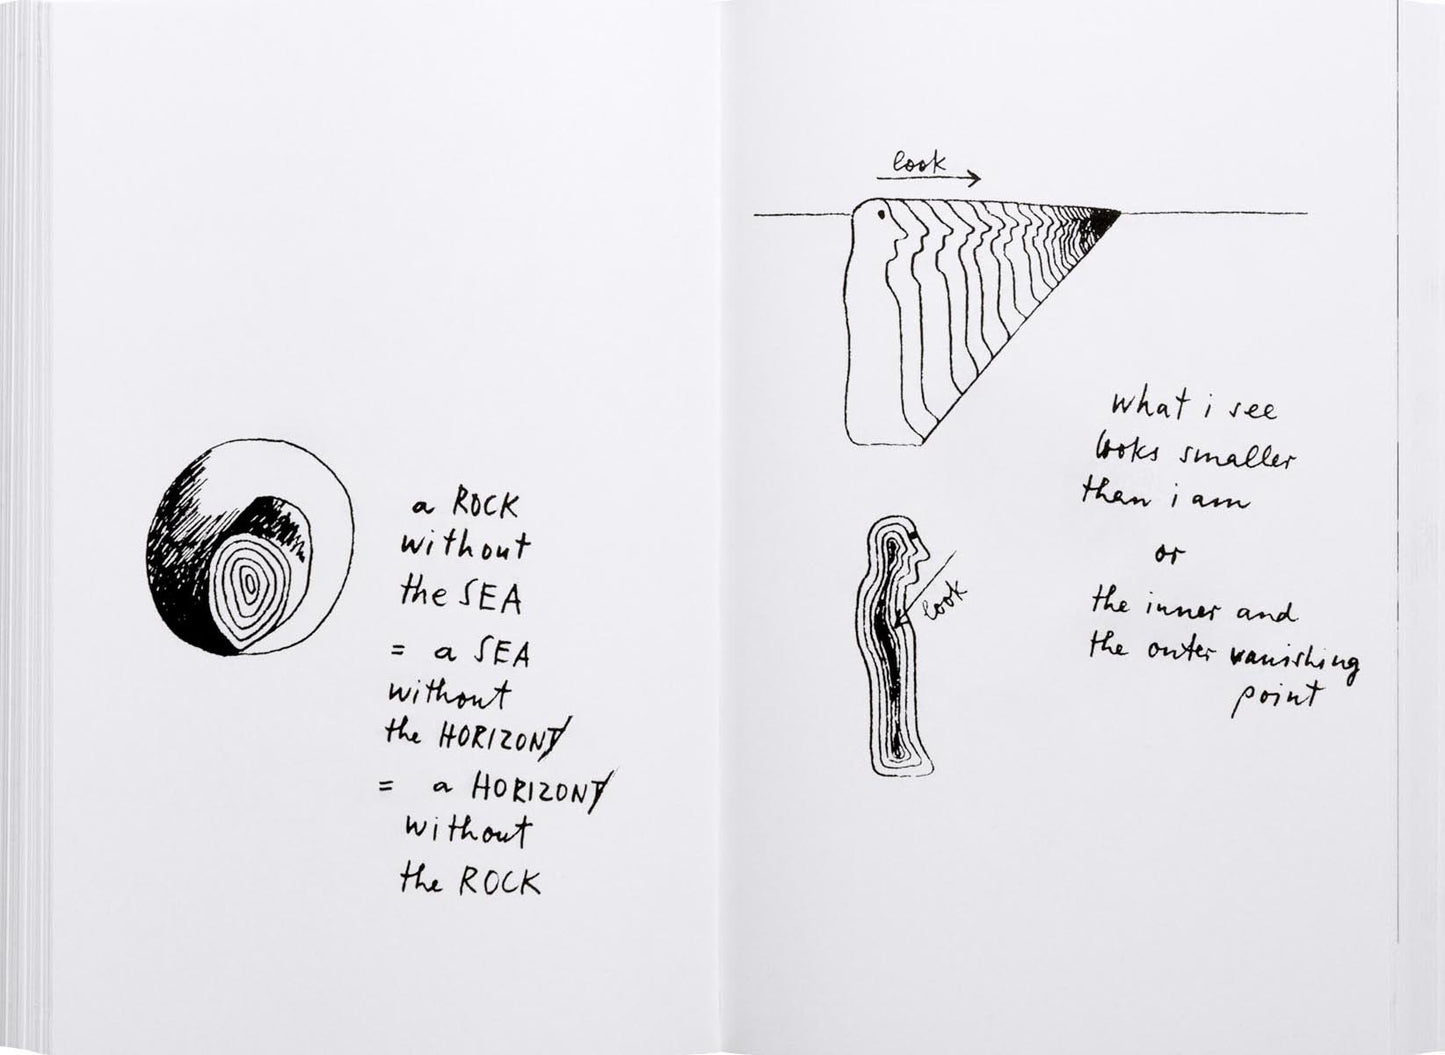 a ROCK
without
the SEA
= a SEA
without
the HORIZONT
= a HORIZONT
without
the ROCK
look
what i see
looks smaller
than i am
or
the inner and
the outer vanishing
point
look